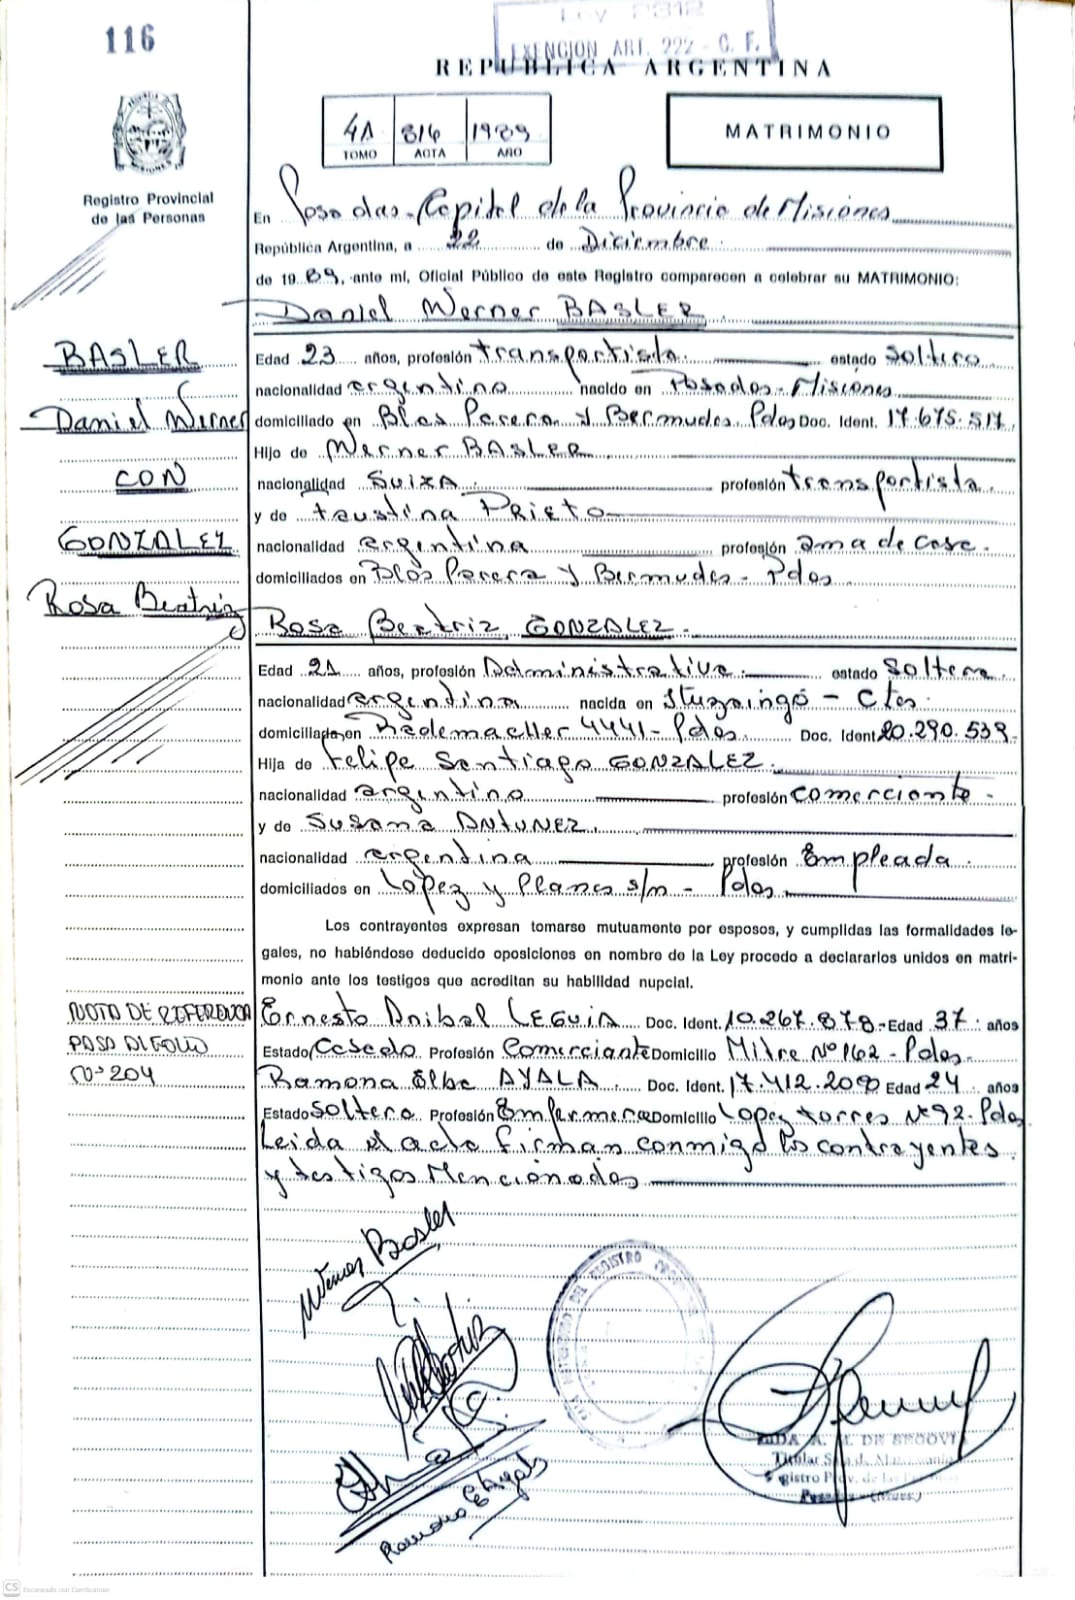 116
Ley 2312
EXENCION ART. 222 - C. F.
REPUBLICA ARGENTINA
4A 816 1989
TOMO ACTA AÑO
MATRIMONIO
Registro Provincial
de las Personas
En Posadas-Capital de la Provincia de Misiones
República Argentina, a 22 de Diciembre.
de 1989, ante mí, Oficial Público de este Registro comparecen a celebrar su MATRIMONIO:
Daniel Werner BASLER
BASLER
Daniel Werner
CON
GONZALEZ
Rosa Beatriz
Edad 23 años, profesión transportista. estado soltero
nacionalidad argentino nacido en Posadas-Misiones
domiciliado en Blas Parera y Bermudes. Pdas Doc. Ident. 17.675.517.
Hijo de Werner BASLER
nacionalidad SUIZA profesión transportista.
y de Faustina Prieto
nacionalidad argentina profesión ama de casa.
domiciliados en Blas Parera y Bermudes - Pdas
Rosa Beatriz GONZALEZ.
Edad 21 años, profesión Administrativa. estado soltera
nacionalidad argentina nacida en Ituzaingó - Ctes.
domiciliada en Rademacller 4441- Pdas. Doc. Ident. 20.290.539.
Hija de Felipe Santiago GONZALEZ.
nacionalidad argentino profesión comerciante.
y de Susana ANTUNEZ.
nacionalidad argentina profesión Empleada.
domiciliados en López y Planes s/n - Pdas.
Los contrayentes expresan tomarse mutuamente por esposos, y cumplidas las formalidades le-
gales, no habiéndose deducido oposiciones en nombre de la Ley procedo a declararlos unidos en matri-
monio ante los testigos que acreditan su habilidad nupcial.
NOTA DE REFERENCIA
PASA AL FOLIO
Nº 204
Ernesto Anibal LEGUIA Doc. Ident. 10.267.878- Edad 37. años
Estado Casado Profesión Comerciante Domicilio Mitre Nº 162 - Pdas.
Ramona Elba AYALA Doc. Ident. 17.412.200 Edad 24 años
Estado soltera Profesión Enfermera Domicilio Lopez torres Nº 92. Pdas
Leida el acta firman conmigo los contrayentes
y testigos Mencionados
Werner Basler
Ramona E Ayala
REGISTRO
DE SEGOVIA
Titular
Registro Prov. de las
Posadas - (Mnes.)
CS Escaneado con CamScanner